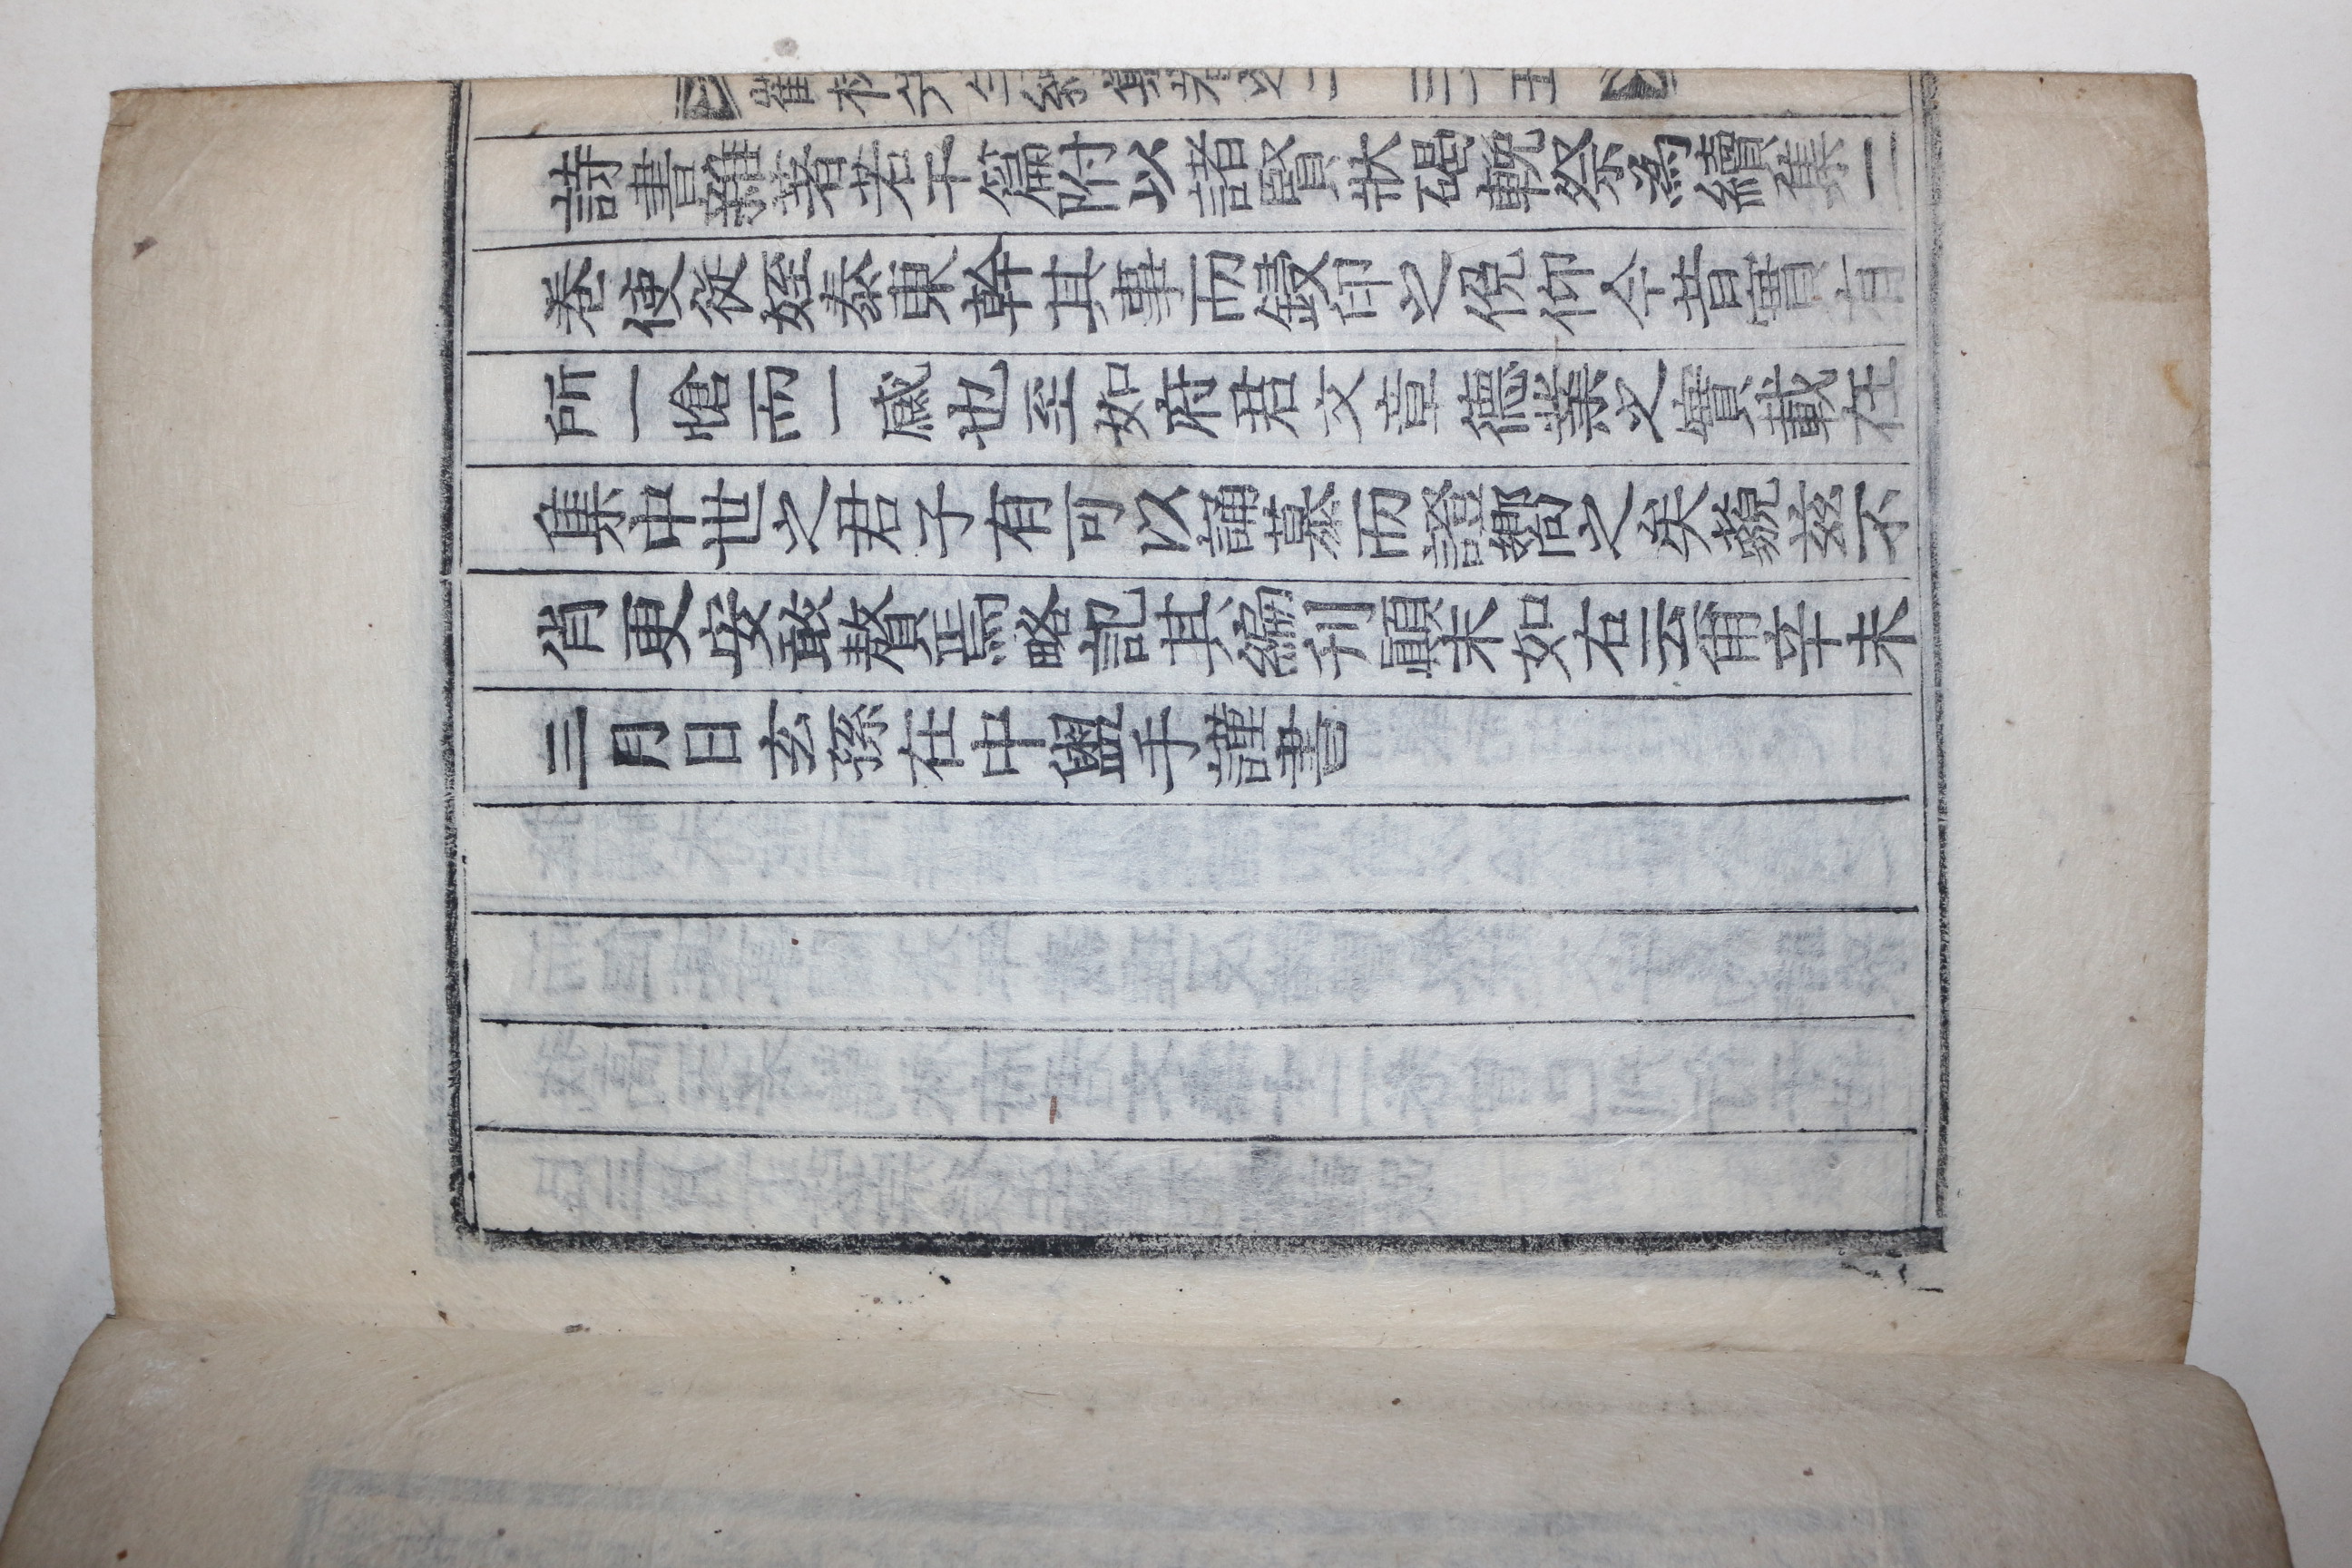 詩書雜著若干篇附以諸賢狀碣輓祭為續集二
卷使從姪泰東幹其事而鋟印之俛仰今昔實有
所一愴而一感也至如府君文章德業之實載在
集中世之君子有可以誦慕而證嚮之矣藐玆不
肖更安敢贅焉略記其編刊顚末如右云爾辛未
三月日玄孫在中盥手謹書